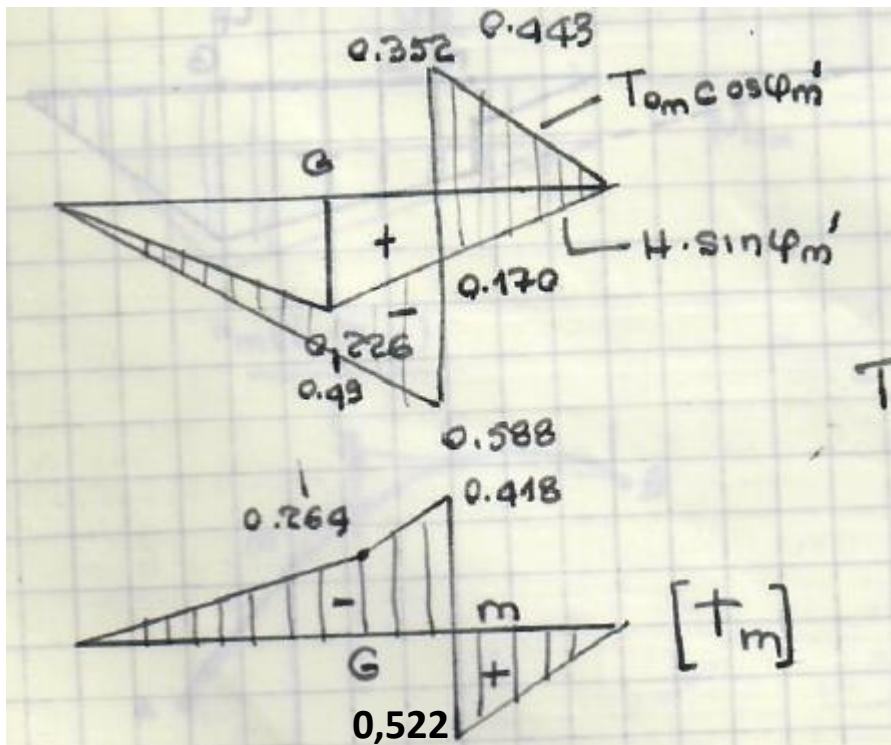 0.352 0.443
T₀ₘ cosφₘ'
G
+
H. sinφₘ'
0.170
-
0,226
0.49
0.588
0.418
0.264
- m [Tₘ]
G +
0,522